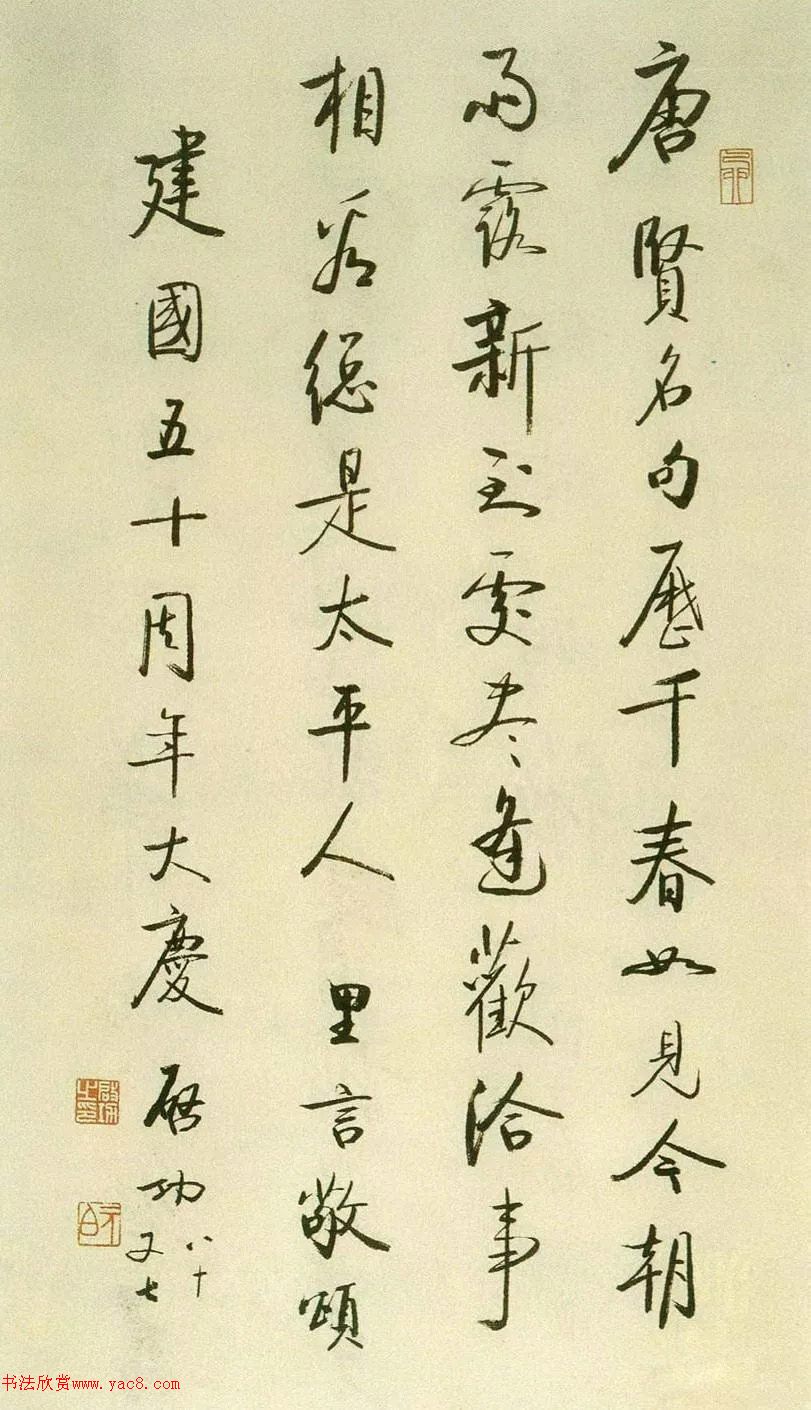 唐賢名句歷千春如見今朝
雨露新到處盡逢歡洽事
相看總是太平人 里言敬頌
建國五十周年大慶 啓功 八十
又七
啟功之印
书法欣赏www.yac8.com